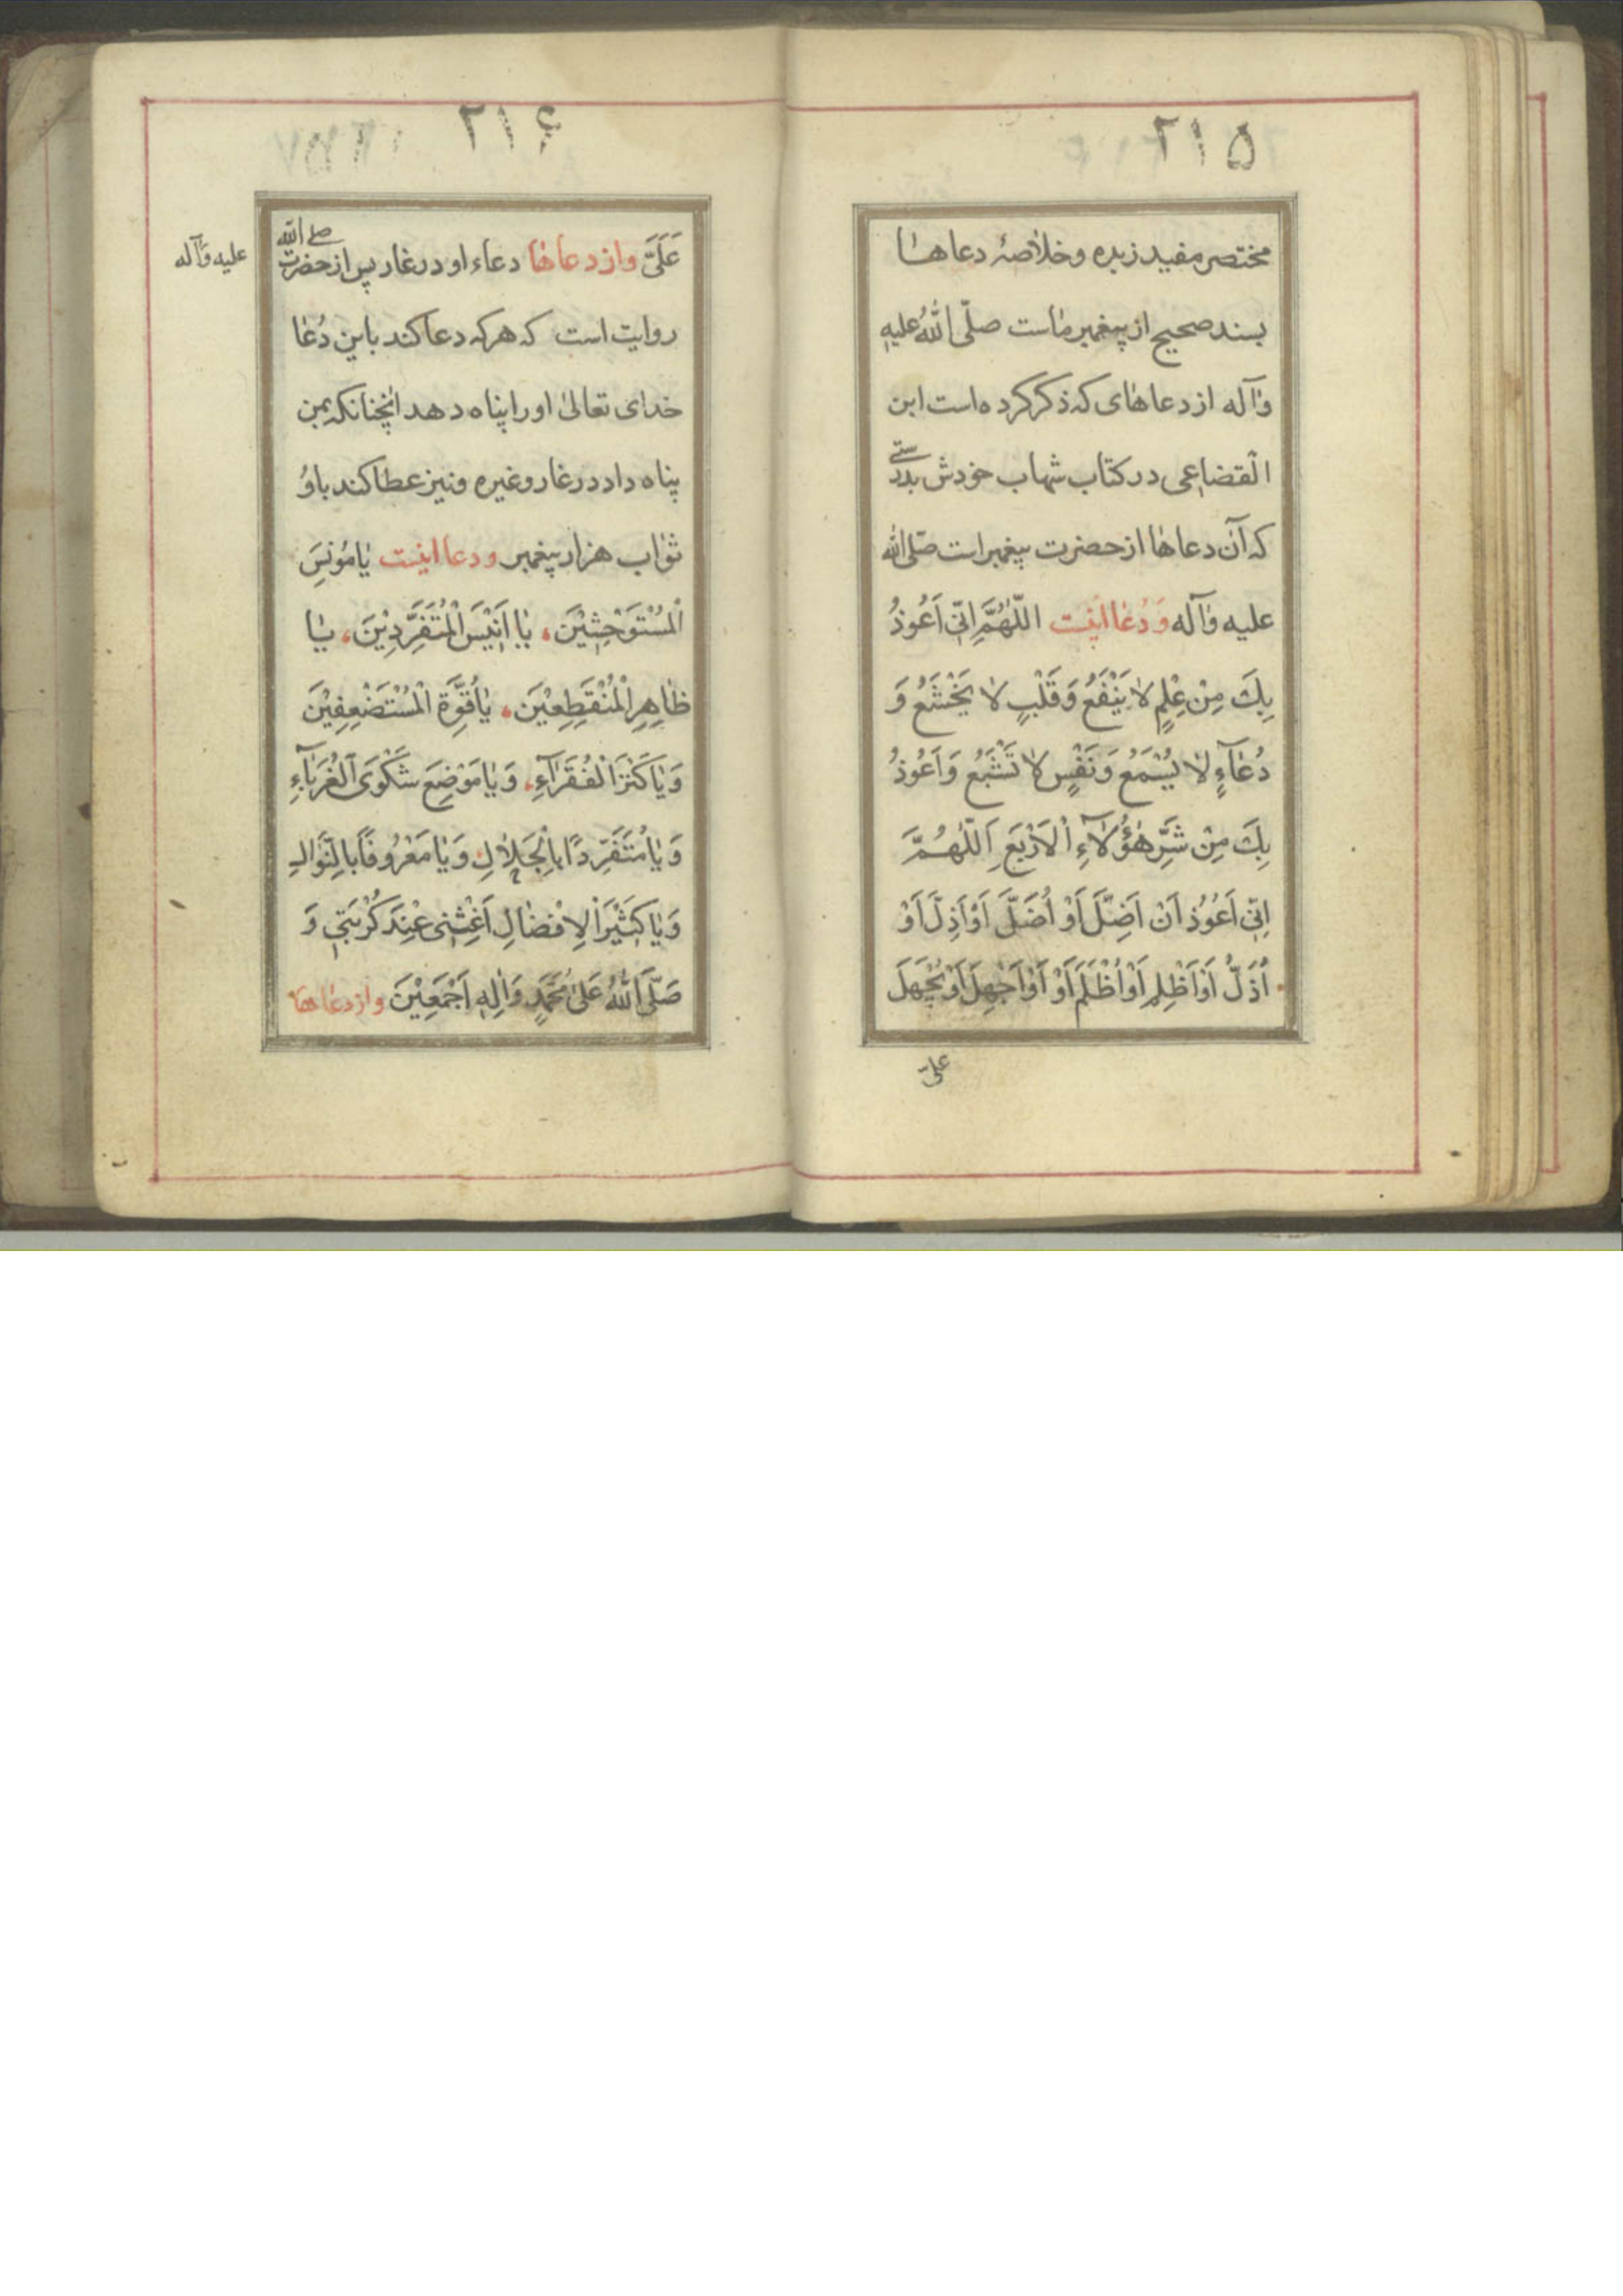 ۲۱۵
مختصر مفید زبده و خلاصهٔ دعاها
بسند صحیح از پیغمبر ماست صلّی اللهُ علیهِ
وآله از دعاهای که ذکر کرده است ابن
القضاعی در کتاب شهاب خودش بدرستے
که آن دعاها از حضرت پیغمبر است صلّی الله
علیه وآله وَ دُعا اینست اللّٰهُمَّ اِنّی اَعُوذُ
بِكَ مِنْ عِلْمٍ لا یَنْفَعُ وَقَلْبٍ لا یَخْشَعُ وَ
دُعآءٍ لا یُسْمَعُ وَنَفْسٍ لا تَشْبَعُ وَاَعُوذُ
بِكَ مِنْ شَرِّ هٰؤُلآءِ الْاَرْبَعِ اَللّٰهُمَّ
اِنّی اَعُوُذ اَنْ اَضِلَّ اَوْ اُضَلَّ اَوْ اَذِلَّ اَوْ
اُذَلَّ اَوْ اَظْلِمِ اَوْ اُظْلَمَ اَوْ اَوْ اَجْهِلَ اَوْ یُجْهَلَ
علیّ
۲۱۶
عَلَیَّ واز دعاها دعاء او در غار پس از حضرت صلے الله
علیه وآله
روایت است که هر که دعا کند باین دُعا
خدای تعالیٰ او را پناه دهد انچنانکه بمن
پناه داد در غار و غیره ونیز عطا کند باوُ
ثواب هزار پیغمبر ودعا اینست یا مُونِسَ
الْمُسْتَوْحِشِیْنَ، یا اَنِیْسَ الْمُتَفَرِّدِیْنَ، یا
ظاهِرِ الْمُنْقَطِعِیْنَ، یا قُوَّةِ الْمُسْتَضْعِفِیْنَ
وَیا کَنْزَ الْفُقَرآءِ، وَیا مَوْضِعَ شَکْوَی الْغُرَبآءِ
وَیا مُتَفَرِّدًا بِالْجَلالِ وَیا مَعْرُوفًا بِالنَّوالِ
وَیا کَثِیْرَ اْلاِفْضالِ اَغِثْنی عِنْدَ کُرْبَتی وَ
صَلَّی اللّٰهُ عَلیٰ مُحَمَّدٍ وَالِهِ اَجْمَعِیْنَ واز دعاها